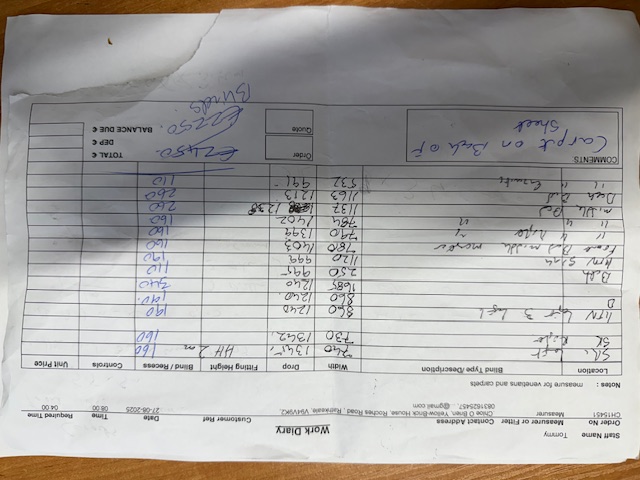 Work Diary
Staff Name Tommy
Order No Measurer or Fitter Contact Address Customer Ref Date Time Required Time
CH15451 Measurer Chloe O Brien, Yellow-Brick House, Roches Road, Rathkeale, V94V9K2, 27-08-2025 08:00 04:00
0831625457 @gmail.com
Notes : measure for venetians and carpets
Location Blind type/Description Width Drop Fitting Height Blind / Recess Controls Unit Price
left 740 1345 HH 2m 160
SR Right 730 1342 160
KITN left 3 860 1240 190
860 1240 190
1685 1240 340
Bath 250 995 110
KITN Sink 1120 999 190
Front Bed middle 780 1403 160
" " Right 790 1399 160
" " 784 1402 160
middle Bed 1132 1238 260
Bed 1163 1213 260
" " Ensuite 532 991 110
COMMENTS:
Carpet on Back of
Sheet
Order
Quote
TOTAL € €2450.
DEP €
BALANCE DUE € €2250.
Blinds.